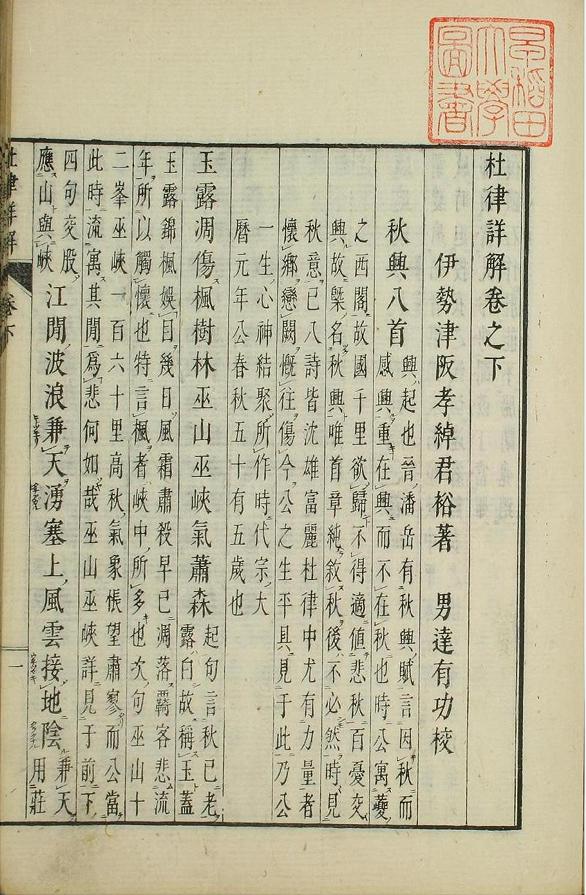 早稻田
大學
圖書
杜律詳解卷之下
伊勢津阪孝綽君裕著　男達有功校
秋興八首
興起也晉潘岳有秋興賦言因秋而
感興重在興而不在秋也時公寓夔
之西閣故國千里欲歸不得適値悲秋百憂交
興故槩名秋興唯首章純敘秋後不必然時見
秋意已八詩皆沈雄富麗杜律中尤有力量者
懷鄉戀闕慨往傷今公之生平具見于此乃公
一生心神結聚所作時代宗大
曆元年公春秋五十有五歲也
玉露凋傷楓樹林巫山巫峽氣蕭森
起句言秋已老
露白故稱玉蓋
玉露錦楓娛目幾日風霜肅殺早已凋落羇客悲流
年所以觸懷也特言楓者峽中所多也次句巫山十
二峯巫峽一百六十里高秋氣象悵望肅寥而公當
此時流寓其閒爲悲何如哉巫山巫峽詳見于前下
四句交股
應山與峽
江閒波浪兼天湧塞上風雲接地陰
兼天
用莊
杜律詳解　卷下
一